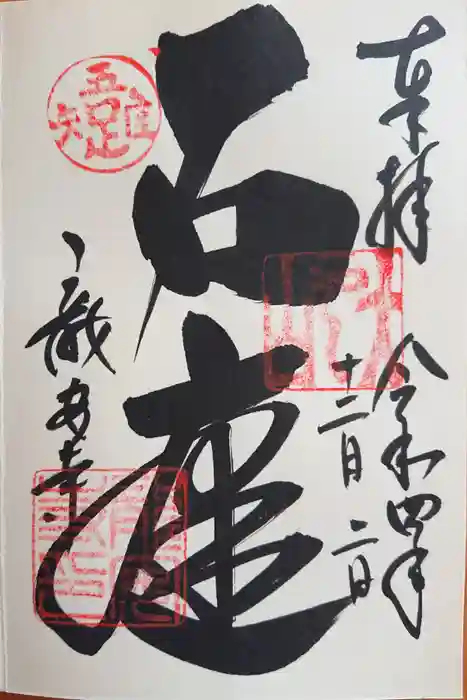 奉拝
令和四年
十二月二日
石庭
吾唯足知
龍安寺